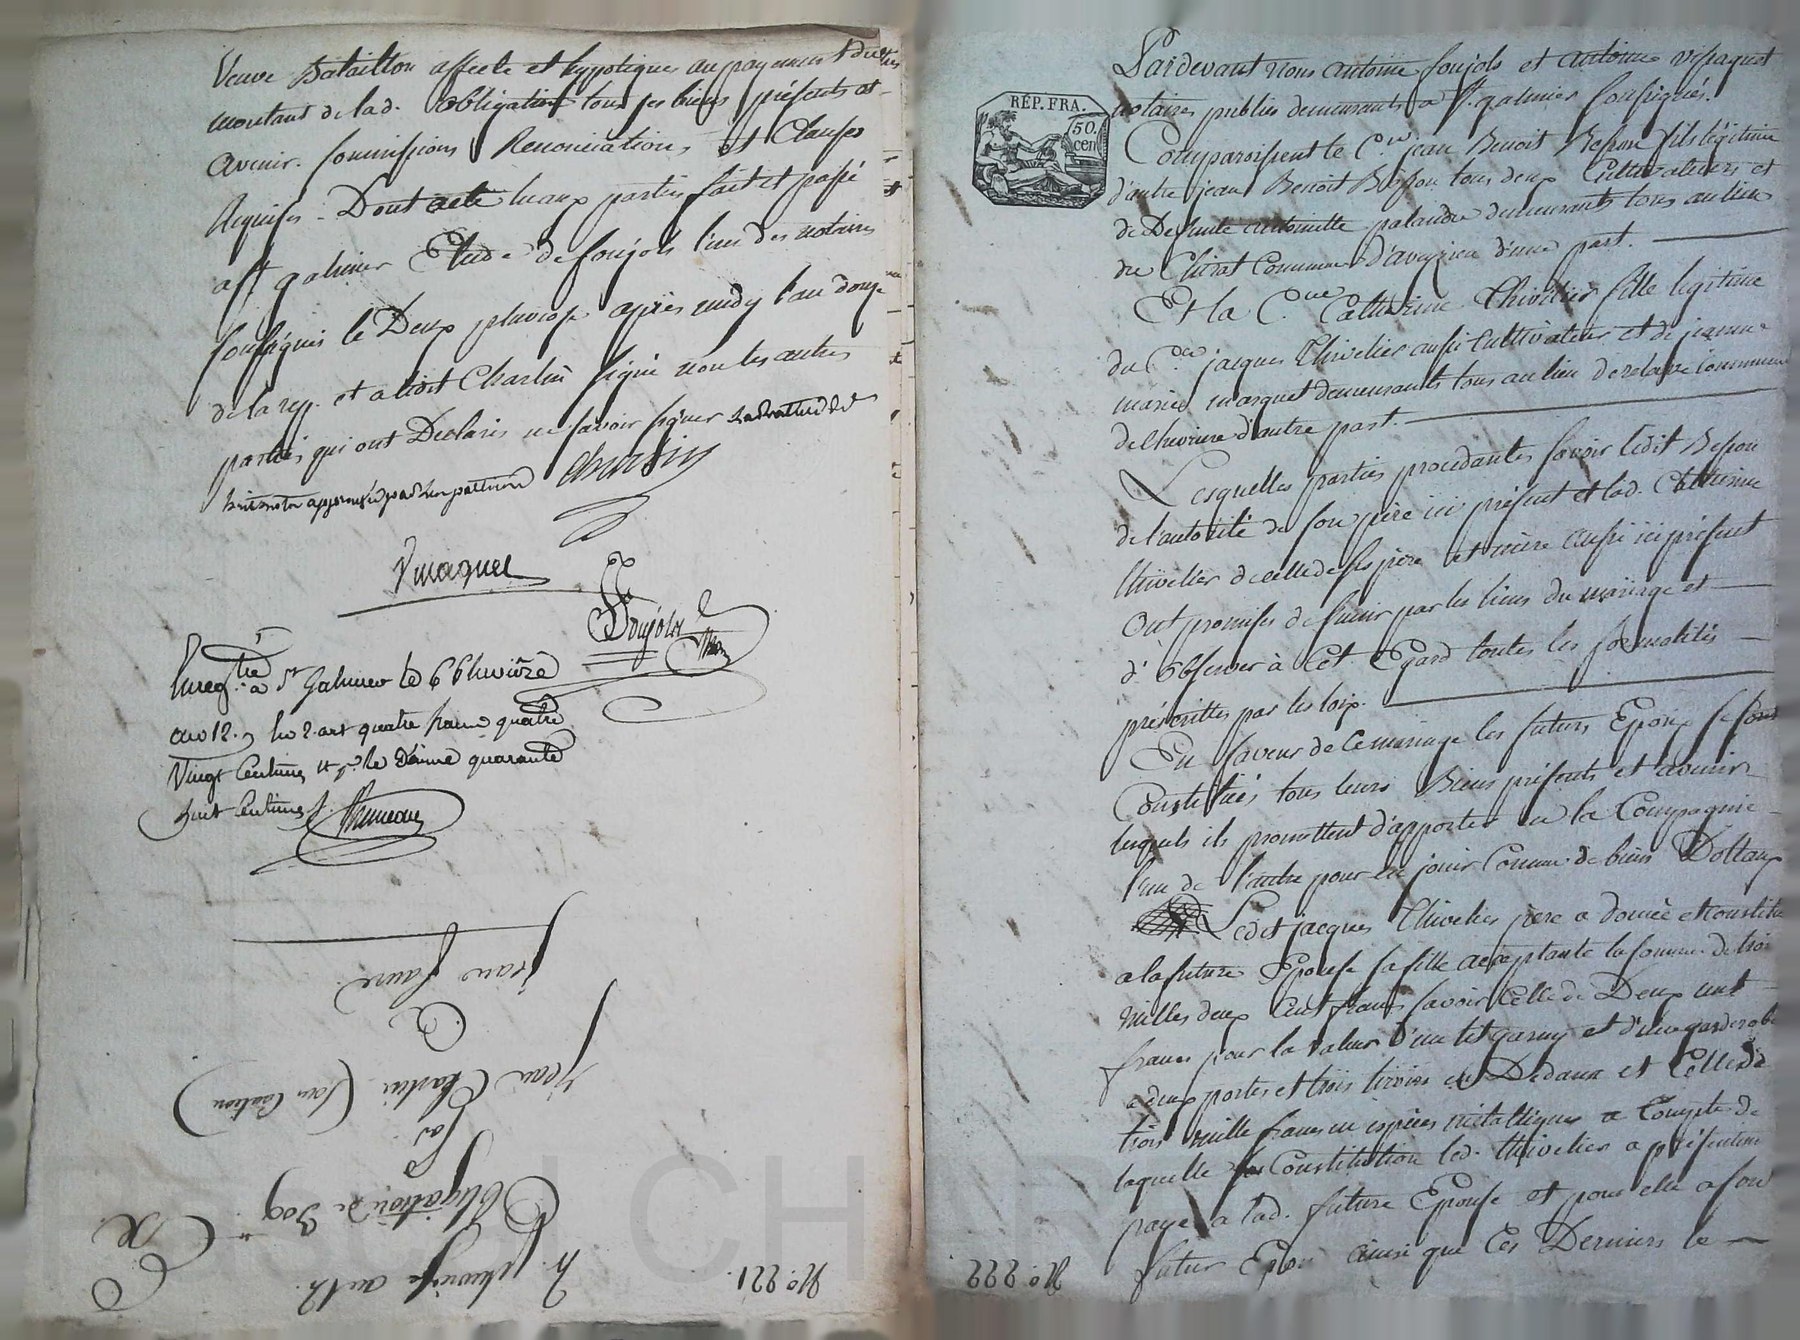 Veuve Bataillon affecte et hyppoteques au payement du
montant de lad. obligation tous ses biens présents et
avenir. Soumissions Renonciations et Clauses
Requises. Dont acte lu aux parties fait et passé
a St galmier Etude de foujols l'un des notaires
soussignés le Deux pluviose après midy l'an douze
de la rep. et a ledit Charlin signé non les autres
parties qui ont Declarés ne savoir signer
Charlin
Vissaguet
Foujols
Enreg.tré a St Galmier le 6 Pluviôse
an 12. quatre francs quatre
Vingt Centimes et pr. le Dixme quarante
huit Centimes
Jean faure
a
Jean Charlin (sa Caution)
Par
Obligation de 309
2 pluviose an 12
No. 221
RÉP. FRA.
50. cen
Pardevant nous antoine foujols et antoine vissaguet
notaires publics demeurants a St. galmier soussignés.
Comparoissent le C.en jean Benoit Besson fils légitime
d'autre jean Benoit Besson tous deux Cultivateurs et
de Defunte antoinette palandre demeurants tous au lieu
du Chirat Commune d'aveysieu d'une part.
Et la C.enne Catherine Thivelier fille legitime
du C.en jacques Thivelier aussi Cultivateur et de jeanne
marie marquet demeurants tous au lieu de commune
de Chevrieres d'autre part.
Lesquelles parties procedantes savoir ledit Besson
de l'autorité de son père ici présent et lad. Catherine
Thivelier de celle de ses père et mère aussi ici présent
Ont promises de s'unir par les liens du mariage et
d'observer à Cet Egard toutes les formalités
préscrittes par les loix.
En faveur de Ce mariage les futurs Epoux se sont
Constitués tous leurs Biens présents et avenir
lesquels ils promettent d'apporter en la Compagnie
l'un de l'autre pour en jouir Comme de biens Dottaux
Ledit jacques Thivelier père a donné et constitué
a la future Epouse sa fille acceptante la somme de trois
milles deux Cent francs savoir Celle de Deux cent
francs pour la valeur d'un lit garny et d'une garderobe
a deux portes et trois tiroirs en Dedans et Celle de
trois mille francs en espèces métalliques a Compte de
laquelle Constitution led. Thivelier a présentement
payé a lad. future Epouse et pour elle a son
futur Epoux ainsi que Ces Derniers le
No. 222